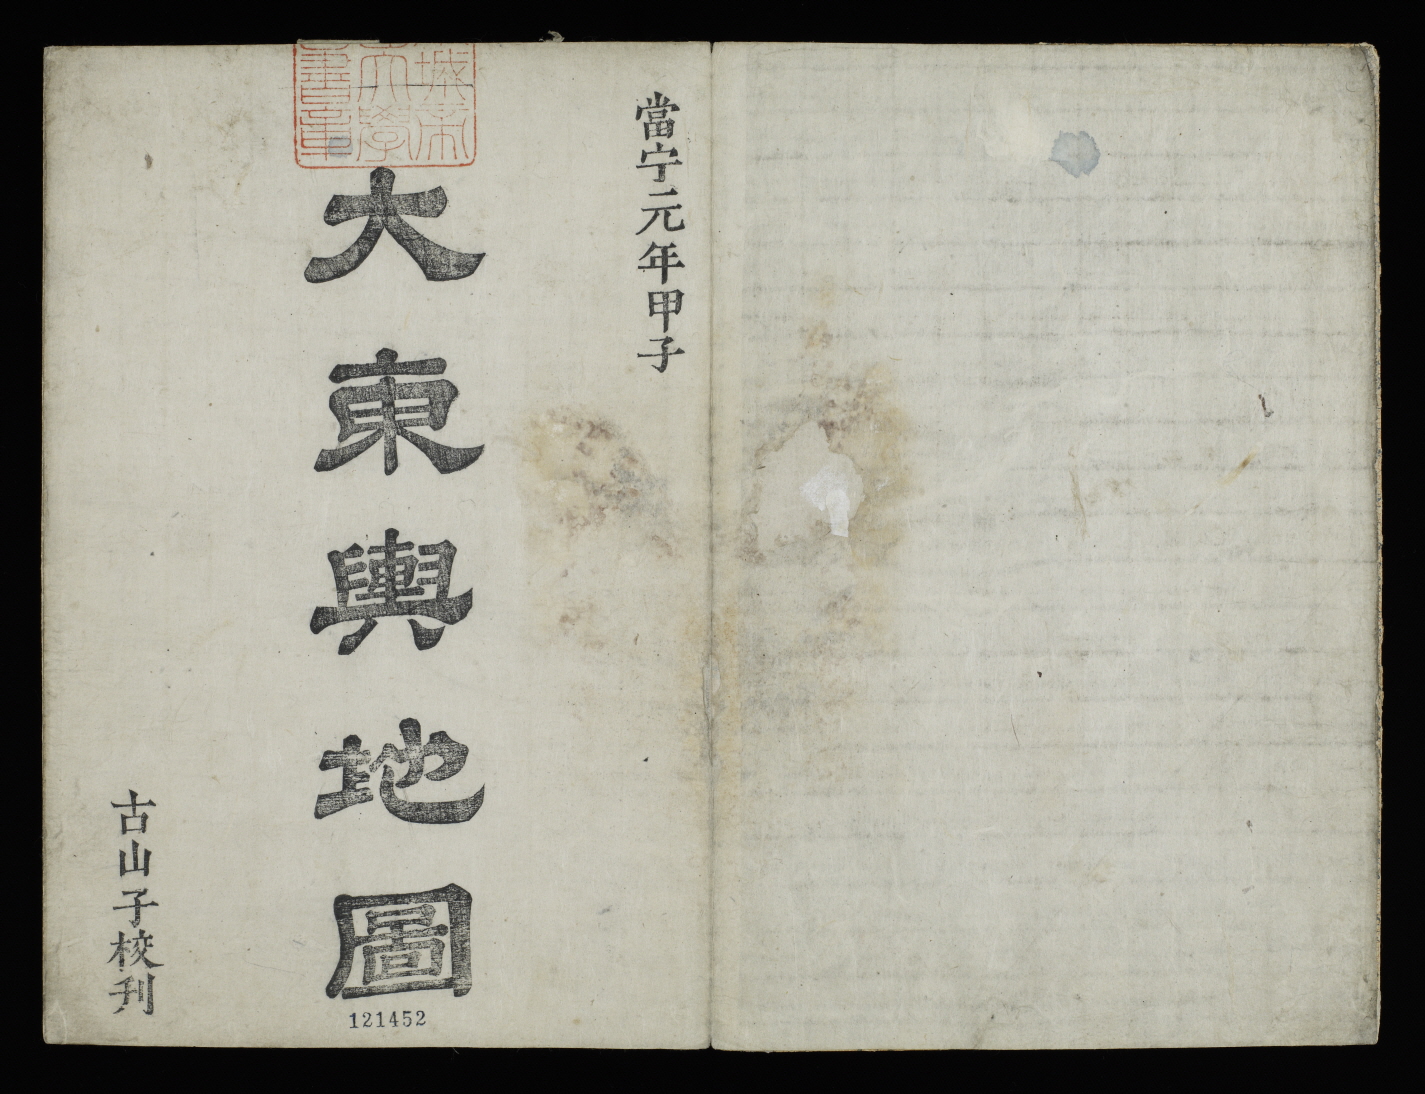 當宁元年甲子
城帝
大學
書章
大東輿地圖
121452
古山子校刊